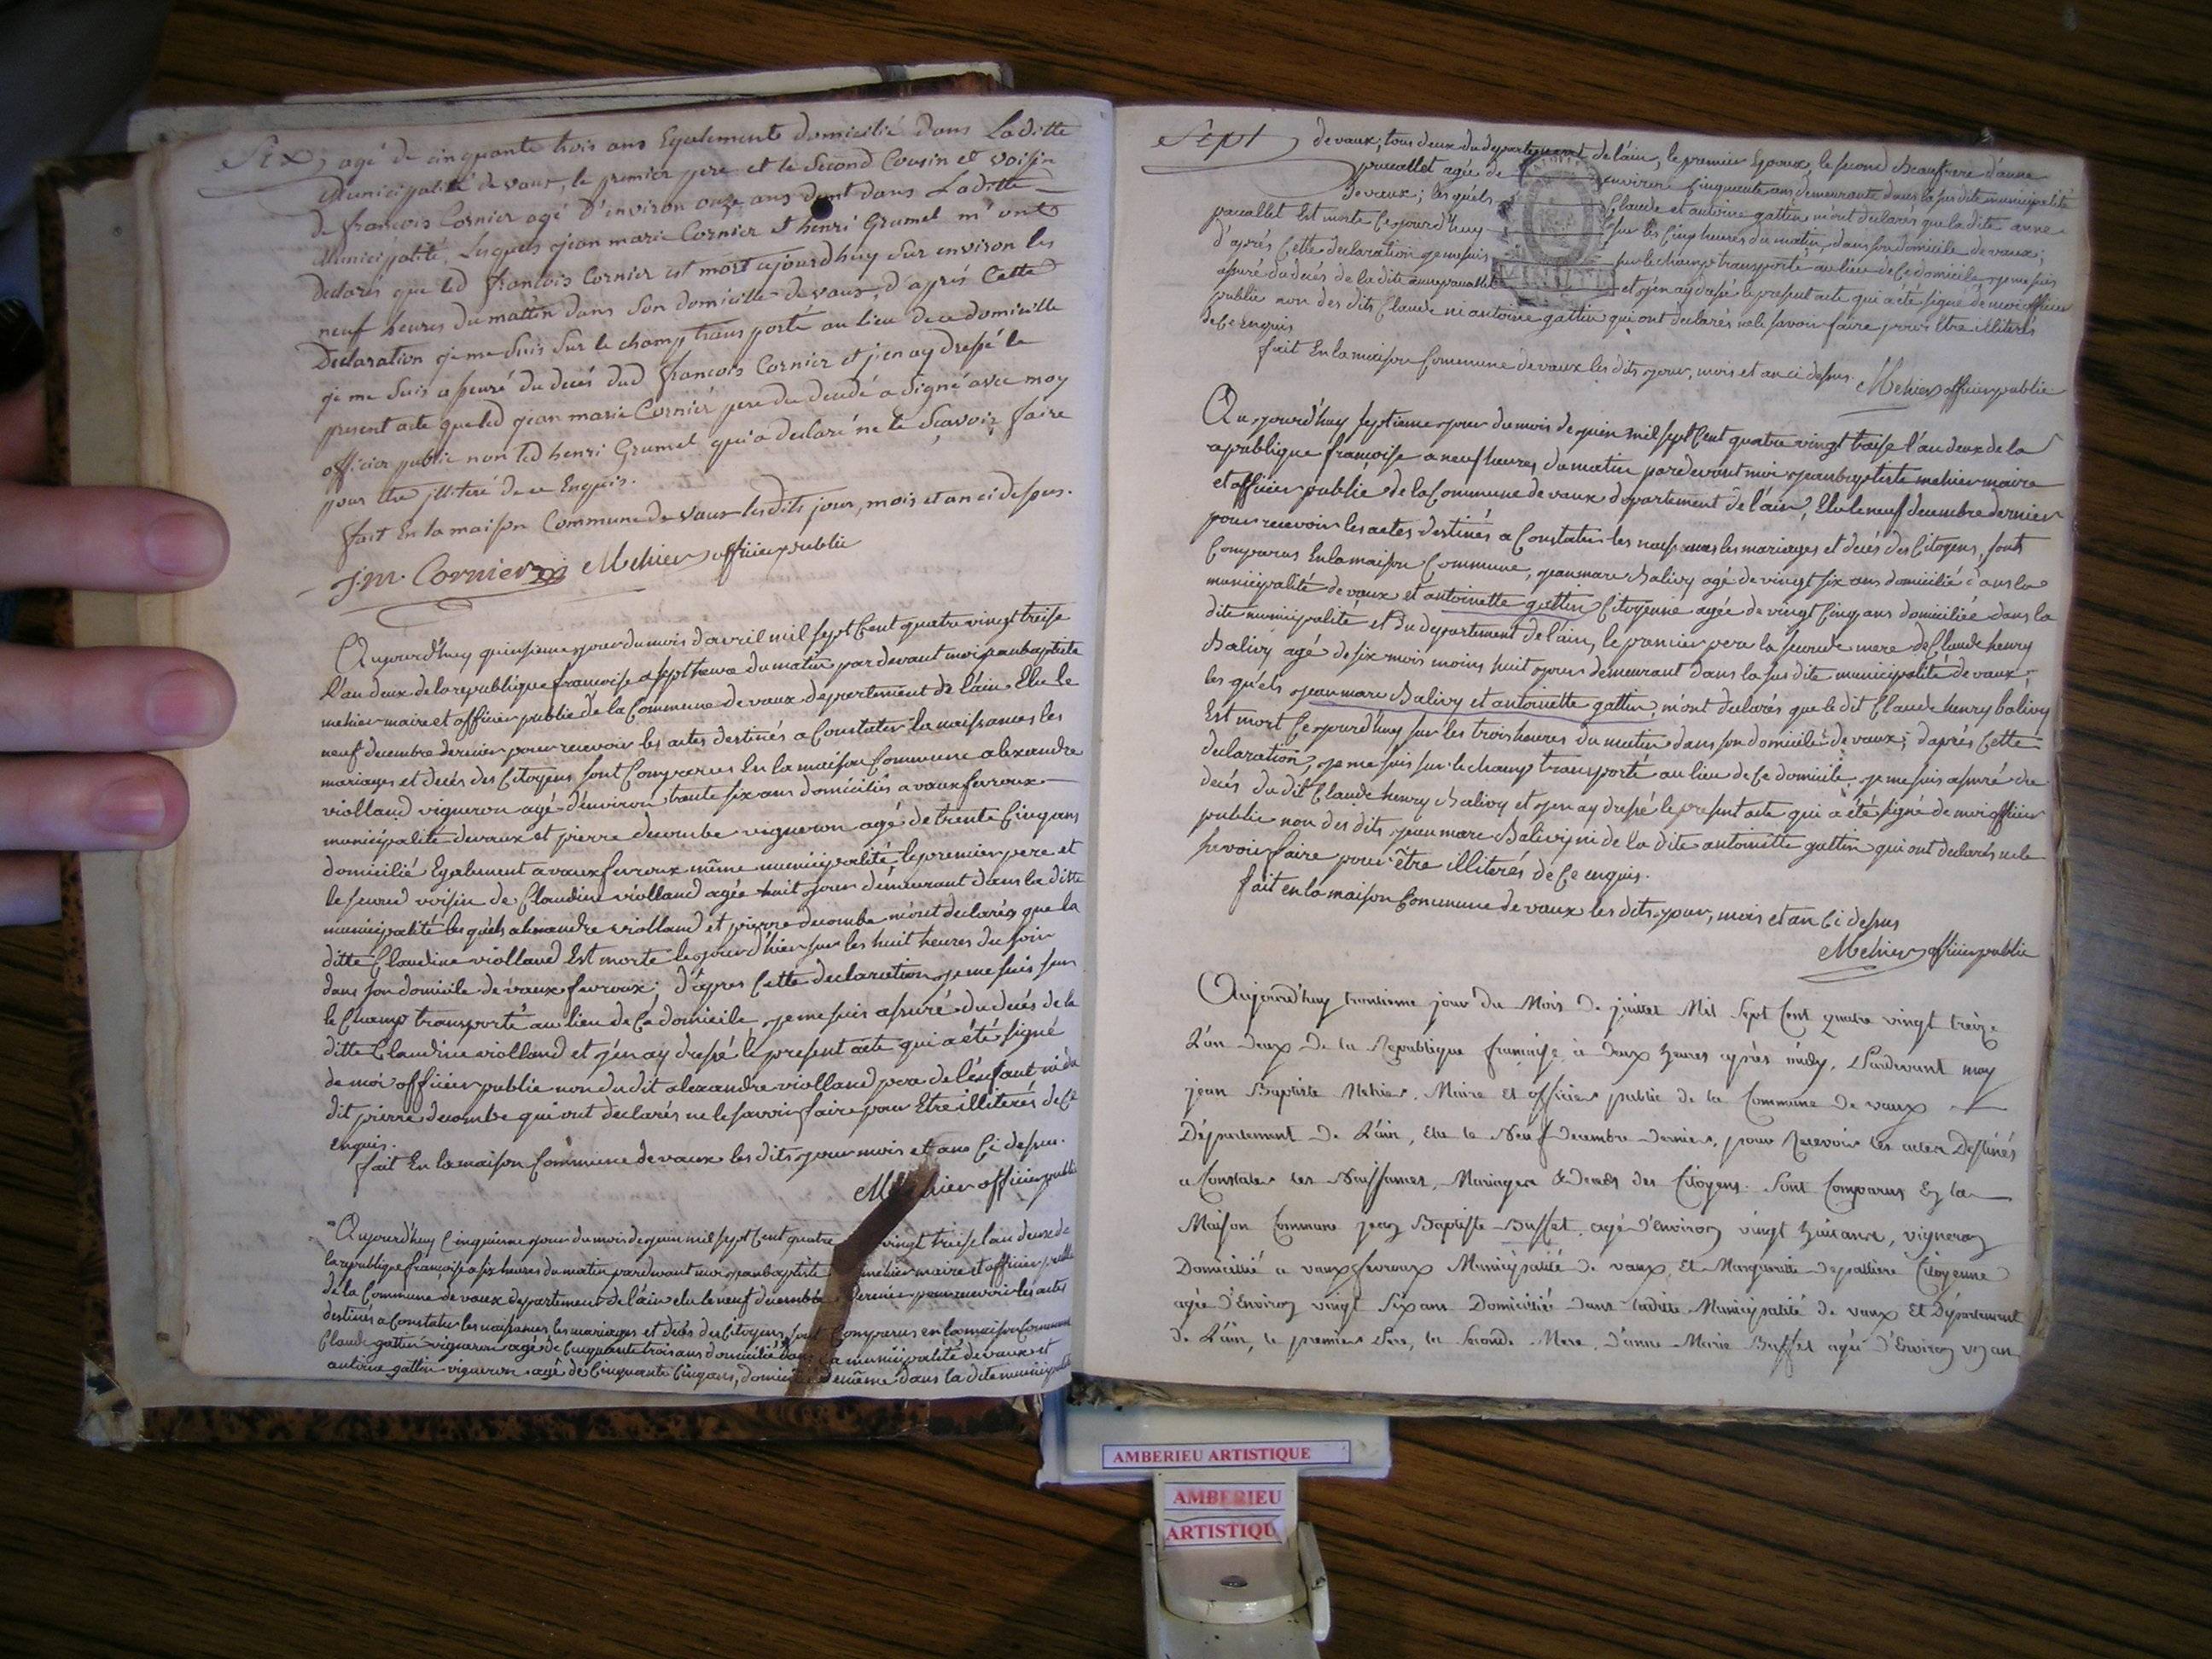 Six, agé de cinquante trois ans Egalement domicilié dans Laditte
Municipalité de vaux, le premier pere et le Second Cousin et voisin
de françois Cornier agé D'environ onze ans dont dans Laditte
Municipalité, Lesquels jean marie Cornier et henri Grumel m'ont
declarés que led françois Cornier est mort ajourdhuy Sur environ les
neuf heures du mattin dans Son domicille de vaux, d'aprés Cette
Declaration je me Suis Sur le champ transporté au lieu de ce domicille
je me Suis asseuré du decés dud françois Cornier et j'en ay dressé le
present acte que led jean marie Cornier pere du decedé a Signé avec moy
officier public non led henri Grumel qui a declaré ne le Sçavoir faire
pour etre jlliteré de ce Enquis.
fait En la maison Commune de Vaux lesdits jour, mois et an ci dessus.
J.m. Cornier Mehier officier public
Aujourd'huy quinsieme jour du mois d'avril mil sept Cent quatre vingt treise
L'an deux de la republique francoise a sept heure du matin par devant moi jean baptiste
mehier maire et officier public de la Commune de vaux departement de l'ain Elu le
neuf decembre dernier pour recevoir les actes destinés a Constater la naissances les
mariages et decés des Citoyens sont Comparus En la maison Commune alexandre
violland vigneron agé d'environ trante six ans domiciliés a vaux fevroux
municipalité de vaux et pierre decombe vigneron agé de trente Cinq ans
domicilié Egalement a vaux fevroux même municipalité le premier pere et
le second voisin de Claudine violland agée huit jours demeurant dans la ditte
municipalité les quéls alexandre violland et pierre decombe m'ont declarés que la
ditte Claudine violland Est morte le jourd'hier sur les huit heures du soir
dans son domicile de vaux fevroux; d'apres Cette declaration je me suis sur
le Champ transporté au lieu de Ce domicile, je me suis assuré du decés de la
ditte Claudine violland et j'en ay dressé le present acte qui a été signé
de moi officier public non du dit alexandre violland pere de l'enfant ni du
dit pierre decombe qui ont declarés ne le savoir faire pour Etre illiterés de Ce
enquis.
fait En la maison Commune de vaux les dits jour mois et an Ci dessus.
Mehier officier public
Aujourd'huy Cinquieme jour du mois de juin mil sept Cent quatre vingt treise l'an deux de
la republique françoise a six heures du matin pardevant moi jean baptiste mehier maire et officier public
de la Commune de vaux departement de l'ain elu le neuf decembre dernier pour recevoir les actes
destinés a Constater les naissances, les mariages et decés des Citoyens, sont Comparus en la maison Commune
Claude gattin vigneron agé de Cinquante trois ans domicilié dans la municipalité de vaux et
antoine gattin vigneron agé de Cinquante Cinq ans, domicilié de même dans la dite municipalité
Sept de vaux; tous deux du departement de l'ain, le premier Epoux, le second Beaufrere d'anne
agée de environ Cinquante ans demeurante dans la susdite municipalité
de vaux; les quéls Claude et antoine gattin m'ont declarés que la dite anne
Est morte Ce jourd'huy sur les Cinq heures du matin dans son domicile de vaux;
d'aprés Cette declaration je me suis sur le champ transporté au lieu de Ce domicile, je me suis
assuré du decés de la dite anne et j'en ay dressé le present acte qui a été signé de moi officier
public non des dits Claude ni antoine gattin qui ont declarés ne le savoir faire pour être illiterés
de Ce enquis
fait En la maison Commune de vaux les dits jour, mois et an ci dessus. Mehier officier public
MINUTE
Aujourd'huy septieme jour du mois de juin mil sept Cent quatre vingt treise l'an deux de la
republique françoise a neuf heures du matin pardevant moi jean baptiste mehier maire
et officier public de la Commune de vaux departement de l'ain, Elu le neuf decembre dernier
pour recevoir les actes destinés a Constater les naissances les mariages et decés des Citoyens, sont
Comparus En la maison Commune, jean marc Balivy agé de vingt six ans domicilié dans la
municipalité de vaux et antoinette gattin Citoyenne agée de vingt Cinq ans domiciliée dans la
dite municipalité et du departement de l'ain, le premier pere la seconde mere de Claude henry
Balivy agé de six mois moins huit jours demeurant dans la susdite municipalité de vaux;
les quéls jean marc Balivy et antoinette gattin, m'ont declarés que le dit Claude henry balivy
Est mort Ce jourd'huy sur les trois heures du matin dans son domicile de vaux; d'aprés Cette
declaration, je me suis sur le champ transporté au lieu de Ce domicile je me suis assuré du
decés du dit Claude henry Balivy et j'en ay dressé le present acte qui a été signé de moi officier
public non des dits jean marc Balivy ni de la dite antoinette gattin qui ont declarés ne le
savoir faire pour être illiterés de Ce enquis.
fait en la maison Commune de vaux les dits jour, mois et an Ci dessus
Mehier officier public
Aujourd'huy trentieme jour du Mois de juillet Mil Sept Cent quatre vingt treize
L'an deux de la Republique française à deux heures après midy, Pardevant moy
jean Baptiste Mehier, Maire et officier public de la Commune de vaux
Département de L'ain, Elu le Neuf decembre dernier, pour Recevoir les actes Destinés
a Constater les Naissances, Mariages & decés des Citoyens. Sont Comparus En la
Maison Commune jean Baptiste Buffet agé d'Environ vingt huit ans, vigneron
Domicilié a vaux fevroux Municipalité de vaux, Et Marguerite depalliere Citoyenne
agée d'Environ vingt Six ans Domiciliée dans laditte Municipalité de vaux Et Département
de L'ain, le premier Pere, la Seconde Mere, d'anne Marie Buffet agée d'Environ un an
AMBERIEU ARTISTIQUE
AMBERIEU
ARTISTIQU